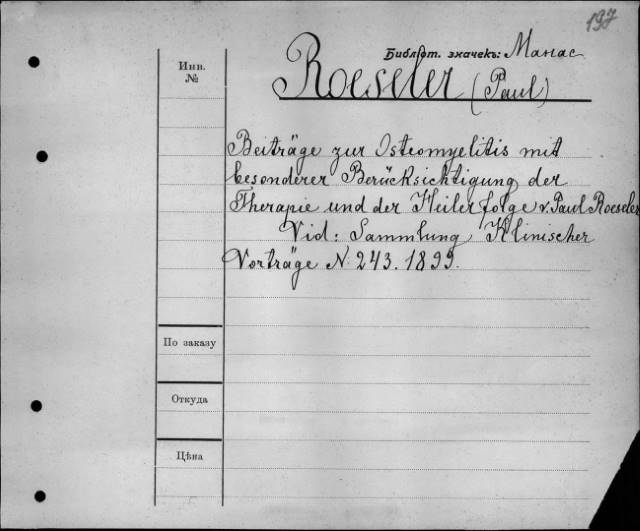 197
Библіот. значекъ: Манас
Инв.
№
Roeseler (Paul)
Beiträge zur Osteomyelitis mit
besonderer Berücksichtigung der
Therapie und der Heilerfolge v. Paul Roeseler
Vid: Sammlung Klinischer
Vorträge N. 243. 1899.
По заказу
Откуда
Цѣна